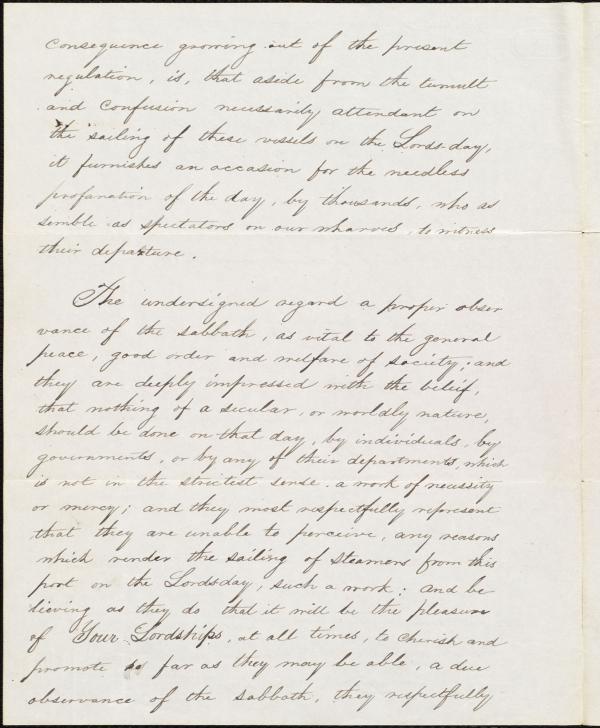 consequence growing out of the present
regulation, is, that aside from the tumult
and confusion necessarily attendant on
the sailing of these vessels on the Lords-day,
it furnishes an occasion for the needless
profanation of the day, by thousands, who as
semble as spectators on our wharves, to witness
their departure.
The undersigned regard a proper obser
vance of the sabbath, as vital to the general
peace, good order and welfare of society; and
they are deeply impressed with the beleif,
that nothing of a secular, or worldly nature,
should be done on that day, by individuals, by
governments, or by any of their departments, which
is not in the strictest sense a work of necessity
or mercy; and they most respectfully represent
that they are unable to perceive, any reasons
which render the sailing of Steamers from this
port on the Lordsday, such a work; and be
lieving as they do that it will be the pleasure
of Your Lordships, at all times, to cherish and
promote so far as they may be able, a due
observance of the sabbath, they respectfully